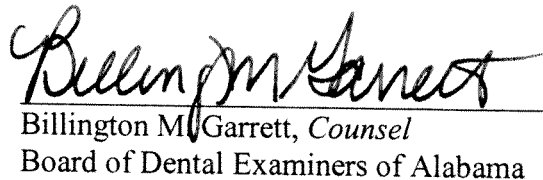 Billing M Garrett
Billington M. Garrett, Counsel
Board of Dental Examiners of Alabama